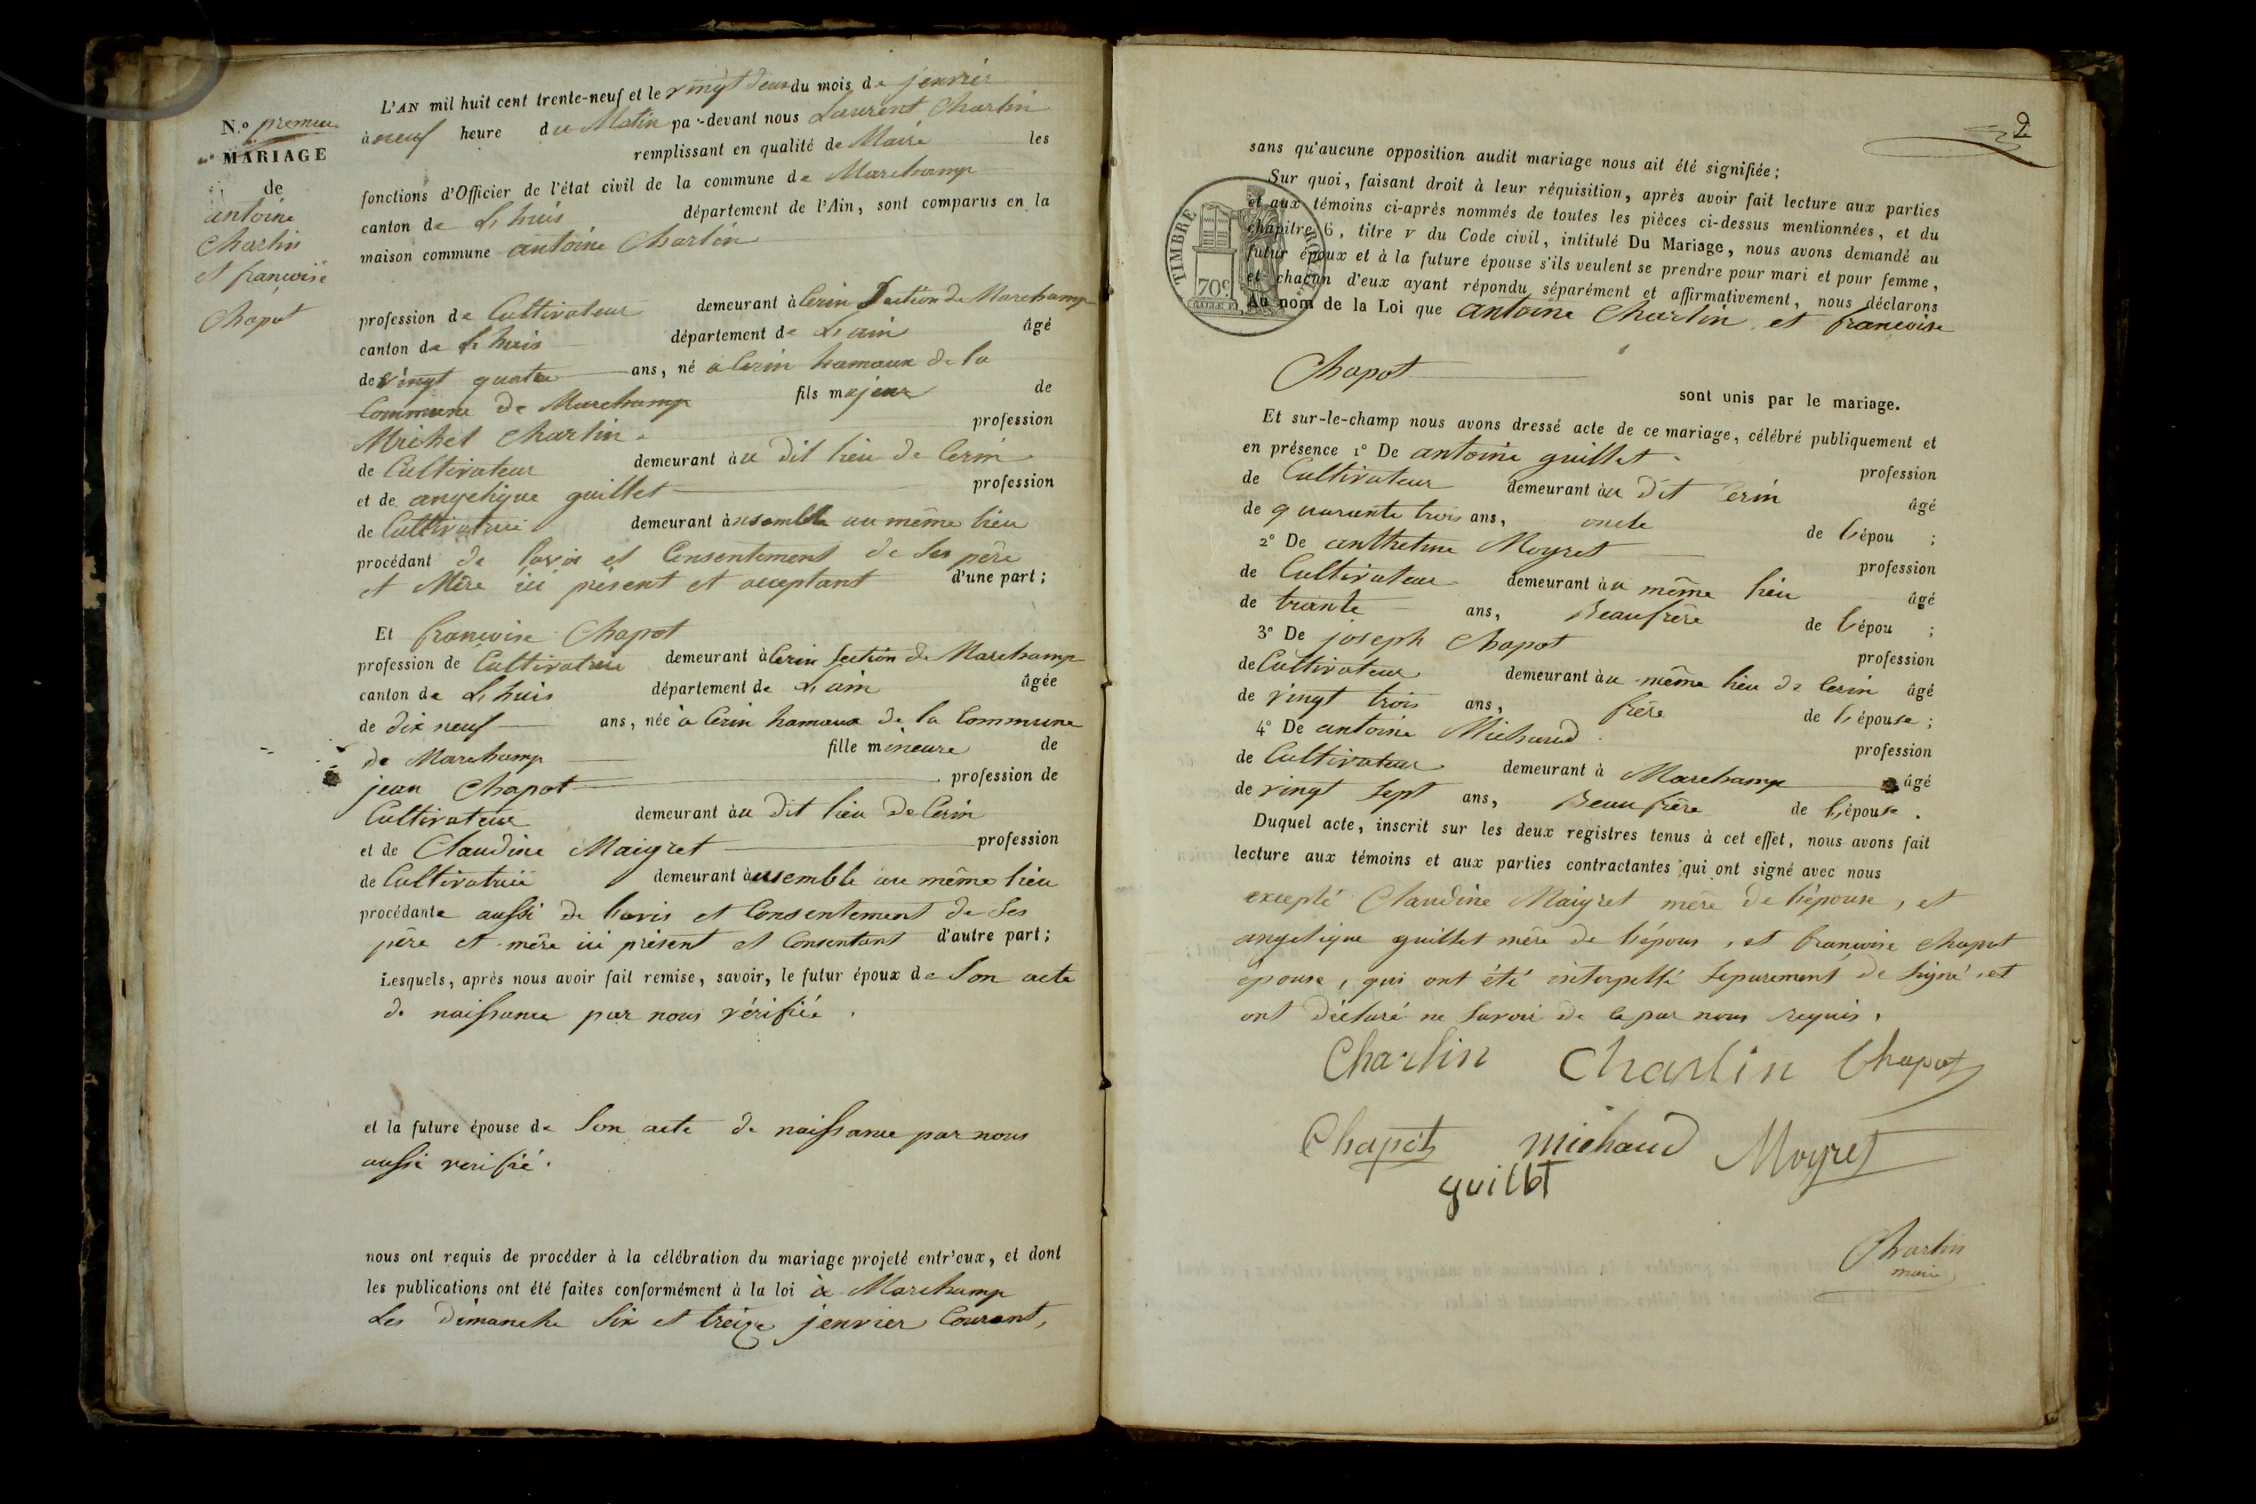 N.º premier
MARIAGE
de
antoine
Charlin
et françoise
Chapot
L'AN mil huit cent trente-neuf et le vingt deux du mois de jenvier
à neuf heure du Matin par-devant nous Laurent Charlin
remplissant en qualité de Maire les
fonctions d'Officier de l'état civil de la commune de Marchamp
canton de L'huis département de l'Ain, sont comparus en la
maison commune antoine Charlin
profession de Cultivateur demeurant à Cerin Section de Marchamp
canton de L'huis département de L'ain âgé
de vingt quatre ans, né à Cerin hamaux de la
Commune de Marchamp fils majeur de
Michel Charlin profession
de Cultivateur demeurant au dit lieu de Cerin
et de angelique guillet profession
de Cultivatrice demeurant ensemble au même lieu
procédant de lavis et Consentement de Ses père
et Mère ici présent et acceptant d'une part;
Et françoise Chapot
profession de Cultivatrice demeurant à Cerin Section de Marchamp
canton de L'huis département de L'ain âgée
de dix neuf ans, née à Cerin hamaux de la Commune
de Marchamp fille mineure de
jean Chapot profession de
Cultivateur demeurant au dit lieu de Cerin
et de Claudine Maigret profession
de Cultivatrice demeurant ensemble au même lieu
procédante aussi de lavis et Consentement de Ses
père et mère ici présent et Consentant d'autre part;
Lesquels, après nous avoir fait remise, savoir, le futur époux de Son acte
de naissance par nous vérifiée.
et la future épouse de Son acte de naissance par nous
aussi verifié.
nous ont requis de procéder à la célébration du mariage projeté entr'eux, et dont
les publications ont été faites conformément à la loi à Marchamp
Les dimanche Six et treize jenvier Courant,
2
sans qu'aucune opposition audit mariage nous ait été signifiée;
Sur quoi, faisant droit à leur réquisition, après avoir fait lecture aux parties
et aux témoins ci-après nommés de toutes les pièces ci-dessus mentionnées, et du
chapitre 6, titre v du Code civil, intitulé Du Mariage, nous avons demandé au
futur époux et à la future épouse s'ils veulent se prendre pour mari et pour femme,
et chacun d'eux ayant répondu séparément et affirmativement, nous déclarons
Au nom de la Loi que antoine Charlin et françoise
TIMBRE ROYAL
70c.
Chapot
sont unis par le mariage.
Et sur-le-champ nous avons dressé acte de ce mariage, célébré publiquement et
en présence 1º De antoine guillet profession
de Cultivateur demeurant au dit Cerin âgé
de quarante trois ans, oncle de l'épou ;
2º De anthelme Moyret profession
de Cultivateur demeurant au même lieu âgé
de trante ans, Beaufrère de l'épou ;
3º De joseph Chapot profession
de Cultivateur demeurant au même lieu de Cerin âgé
de vingt trois ans, frère de l'épouse ;
4º De antoine Michaud profession
de Cultivateur demeurant à Marchamp âgé
de vingt Sept ans, Beaufrère de l'épouse .
Duquel acte, inscrit sur les deux registres tenus à cet effet, nous avons fait
lecture aux témoins et aux parties contractantes qui ont signé avec nous
excepté Claudine Maigret mère de l'épouse, et
angelique guillet mère de l'épous, et françoise chapot
épouse, qui ont été interpellé Separement de Signé, et
ont déclaré ne Savoir de ce par nous requis.
Charlin Charlin Chapot
Chapot michaud Moyret
guillet
Charlin
maire